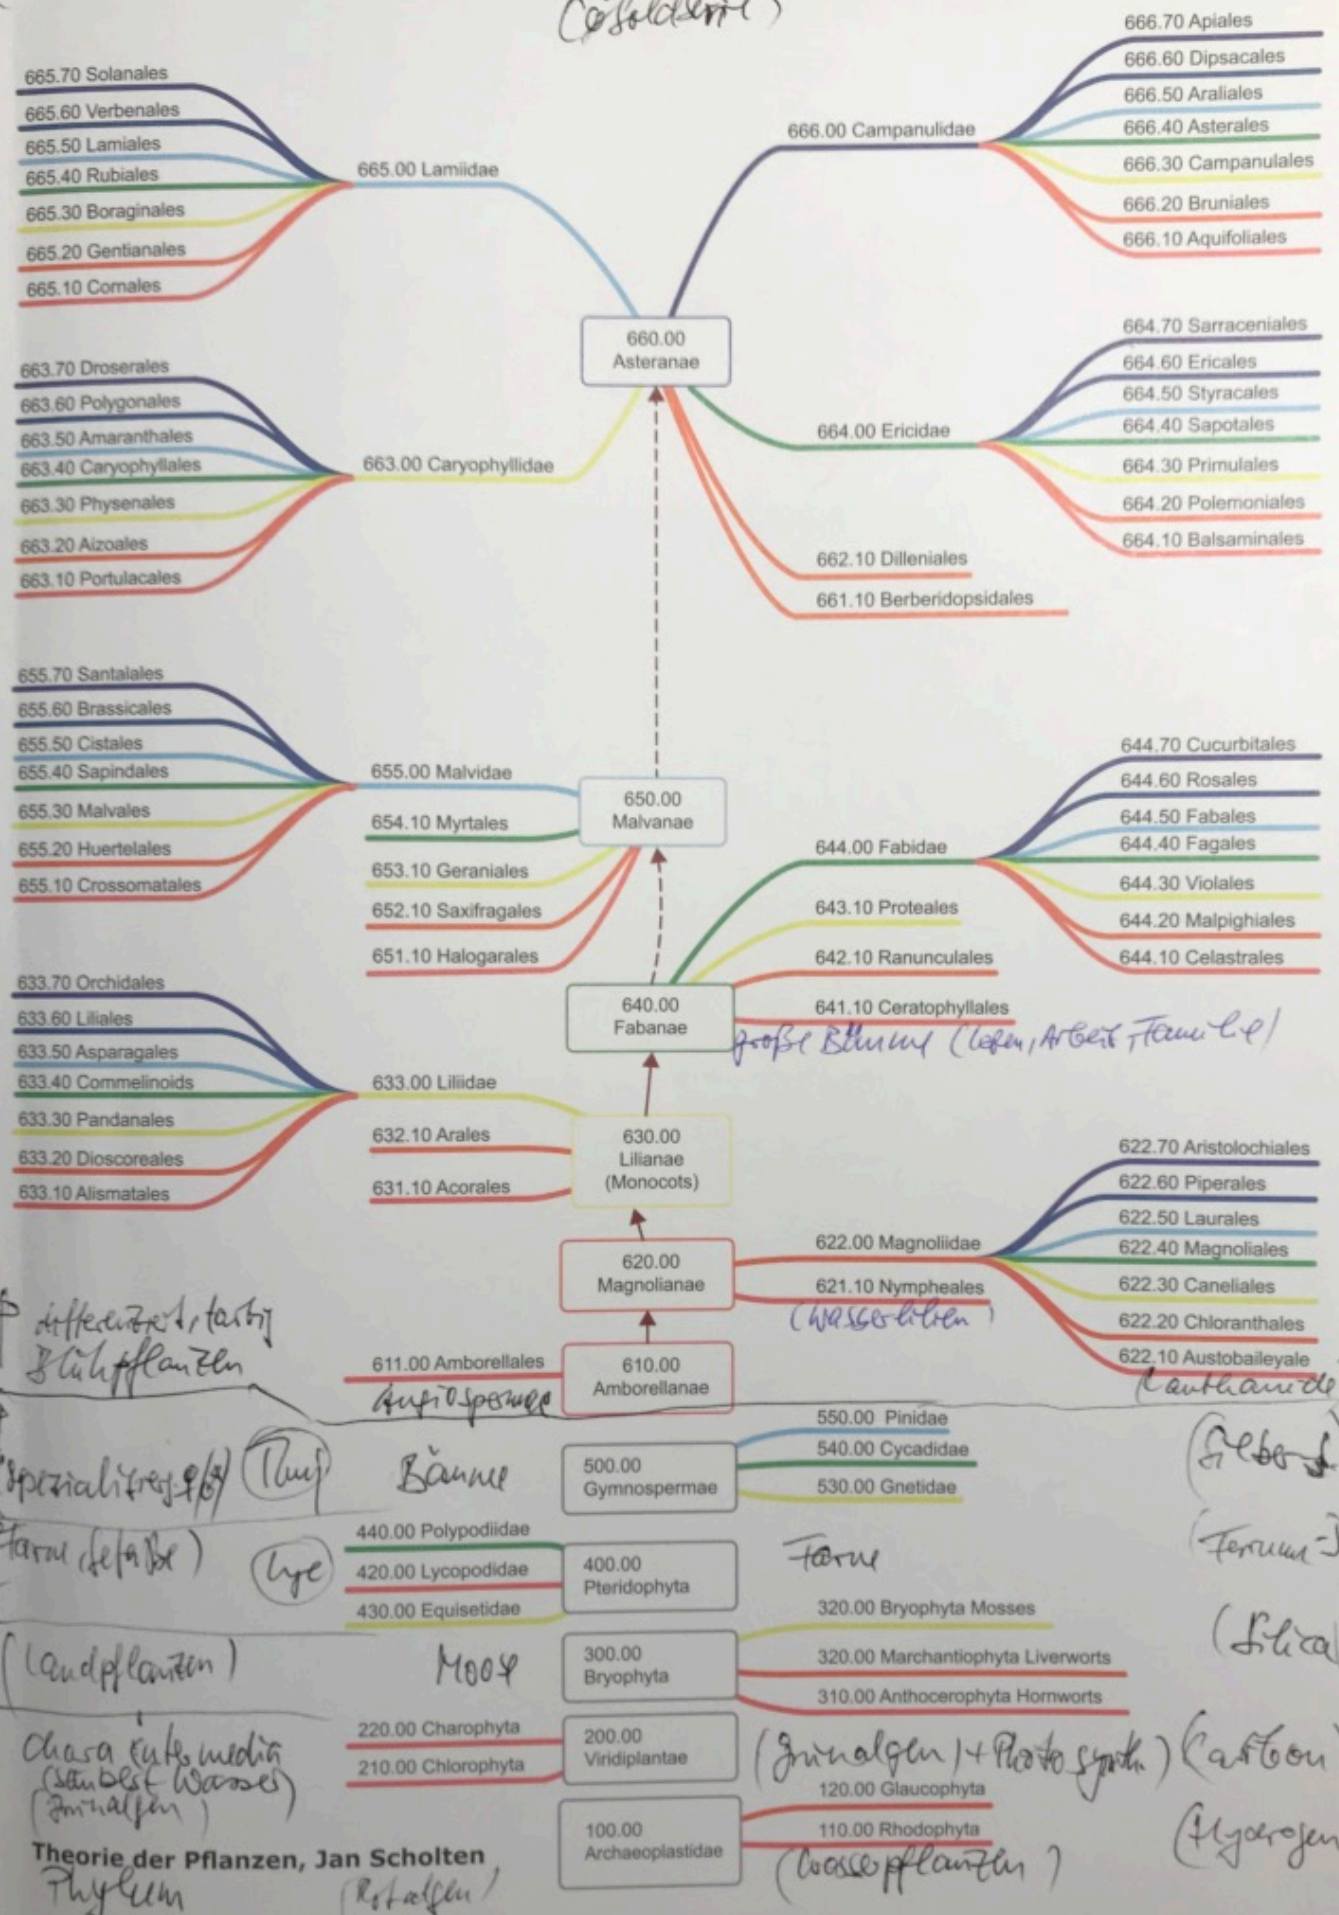 665.70 Solanales
665.60 Verbenales
665.50 Lamiales
665.40 Rubiales
665.30 Boraginales
665.20 Gentianales
665.10 Cornales
665.00 Lamiidae
666.00 Campanulidae
666.70 Apiales
666.60 Dipsacales
666.50 Araliales
666.40 Asterales
666.30 Campanulales
666.20 Bruniales
666.10 Aquifoliales
660.00
Asteranae
663.70 Droserales
663.60 Polygonales
663.50 Amaranthales
663.40 Caryophyllales
663.30 Physenales
663.20 Aizoales
663.10 Portulacales
663.00 Caryophyllidae
664.00 Ericidae
664.70 Sarraceniales
664.60 Ericales
664.50 Styracales
664.40 Sapotales
664.30 Primulales
664.20 Polemoniales
664.10 Balsaminales
662.10 Dilleniales
661.10 Berberidopsidales
655.70 Santalales
655.60 Brassicales
655.50 Cistales
655.40 Sapindales
655.30 Malvales
655.20 Huertelales
655.10 Crossomatales
655.00 Malvidae
654.10 Myrtales
653.10 Geraniales
652.10 Saxifragales
651.10 Halogarales
650.00
Malvanae
644.00 Fabidae
643.10 Proteales
642.10 Ranunculales
641.10 Ceratophyllales
644.70 Cucurbitales
644.60 Rosales
644.50 Fabales
644.40 Fagales
644.30 Violales
644.20 Malpighiales
644.10 Celastrales
640.00
Fabanae
große Bäume (Leben, Arbeit, Familie)
633.70 Orchidales
633.60 Liliales
633.50 Asparagales
633.40 Commelinoids
633.30 Pandanales
633.20 Dioscoreales
633.10 Alismatales
633.00 Liliidae
632.10 Arales
631.10 Acorales
630.00
Lilianae
(Monocots)
620.00
Magnolianae
622.00 Magnoliidae
621.10 Nympheales
(Wasserlilien)
622.70 Aristolochiales
622.60 Piperales
622.50 Laurales
622.40 Magnoliales
622.30 Caneliales
622.20 Chloranthales
622.10 Austobaileyale
(Lanthanide
differenziert, farbig
Blühpflanzen
611.00 Amborellales
Angiospermae
610.00
Amborellanae
Bäume
500.00
Gymnospermae
550.00 Pinidae
540.00 Cycadidae
530.00 Gnetidae
(Silber-
440.00 Polypodiidae
420.00 Lycopodidae
430.00 Equisetidae
400.00
Pteridophyta
Farne
(Ferrum-
(Landpflanzen)
Moose
300.00
Bryophyta
320.00 Bryophyta Mosses
320.00 Marchantiophyta Liverworts
310.00 Anthocerophyta Hornworts
(Silica
Chara intermedia
Wasser)
(Grünalgen)
220.00 Charophyta
210.00 Chlorophyta
200.00
Viridiplantae
(Grünalgen) + Photosynth.) (Carbon
100.00
Archaeoplastidae
120.00 Glaucophyta
110.00 Rhodophyta
(Wasserpflanzen)
(Hydrogen
Theorie der Pflanzen, Jan Scholten
Phylum
(Rotalgen)